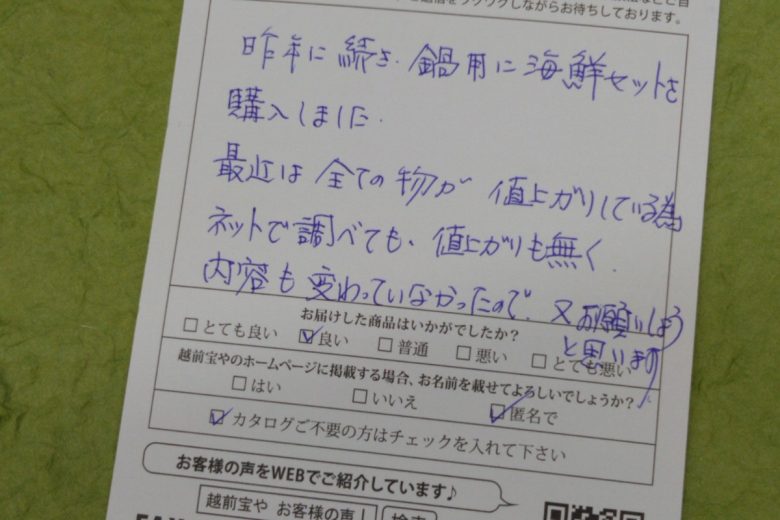 ご返信をワクワクしながらお待ちしております。
昨年に続き、鍋用に海鮮セットを
購入しました.
最近は全ての物が値上がりしている為
ネットで調べても、値上がりも無く、
内容も変わっていなかったので、又お願いしよう
と思います
お届けした商品はいかがでしたか？
□とても良い ☑良い □普通 □悪い □とても悪い
越前宝やのホームページに掲載する場合、お名前を載せてよろしいでしょうか？
□はい □いいえ ☑匿名で
☑カタログご不要の方はチェックを入れて下さい
お客様の声をWEBでご紹介しています♪
越前宝や お客様の声 検索